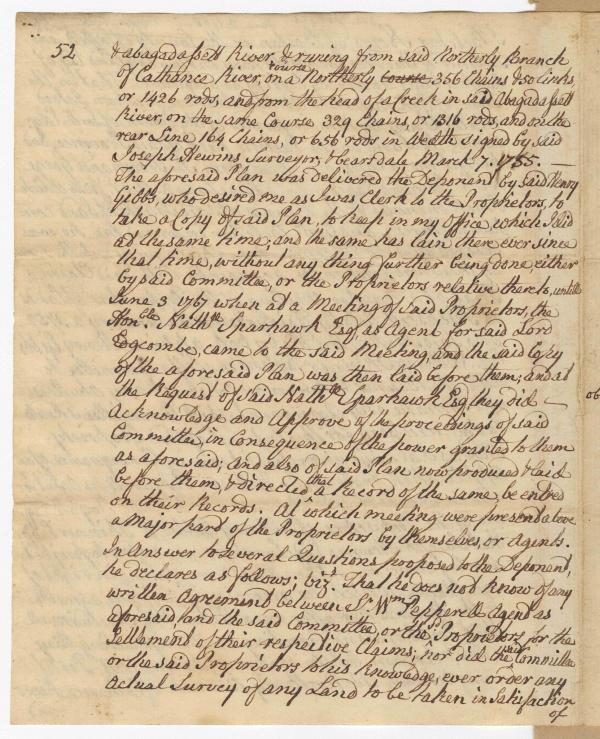 52
& abagadassett River, & runing from said Northerly Branch
of Cathance River, on a Northerly course Course 356 Chains & 50 links
or 1426 rods, and from the head of a Creek in said Abagadassett
River, on the same Course 329 Chains, or 1316 rods, and on the
rear Line 164 Chains, or 656 rods in Wedth signed by said
Joseph Hewins Surveyor, & bears date March 7. 1755. —
The aforesaid Plan was delivered the Deponent by said Henry
Gibbs, who desired me as I was Clerk to the Proprietors, to
take a Copy of said Plan, to keep in my Office, which I did
at the same time, and the same has lain there ever since
that time, without any thing further being done, either
by said Committee, or the Proprietors relative thereto, untill
June 3 1767 when at a Meeting of said Proprietors, the
Honble. Nathll Sparhawk Esq as Agent for said Lord
Edgcombe, came to the said Meeting, and the said Copy
of the aforesaid Plan was then laid before them; and at
the Request of said Nathll Sparhawk Esq they did —
Acknowledge and Approve of the proceedings of said
Committee, in Consequence of the power granted to them
as aforesaid; and also of said Plan now produced & laid
before them, & directed that a Record of the same, be entred
on their Records. At which meeting were present above
a Major part of the Proprietors by themselves, or Agents.
In Answer to several Questions proposed to the Deponent,
he declares as follows; vizt. That he does not know of any
written Agreement between Sr. Wm Pepperell Agent as
aforesaid, and the said Committee, or the sd Proprietors for the
Settlement of their respective Claims; nor did the said Committee
or the said Proprietors to his knowledge, ever order any
actual Survey of any Land to be taken in Satisfaction
of
ob